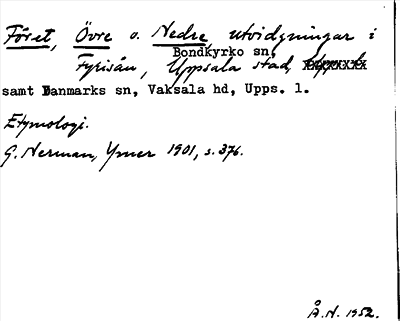 Föret, Övre o. Nedre, utvidgningar i
Bondkyrko sn,
Fyrisån, Uppsala stad,
samt Danmarks sn, Vaksala hd, Upps. l.
Etymologi.
G. Nerman, Ymer 1901, s. 376.
Å.N. 1952.